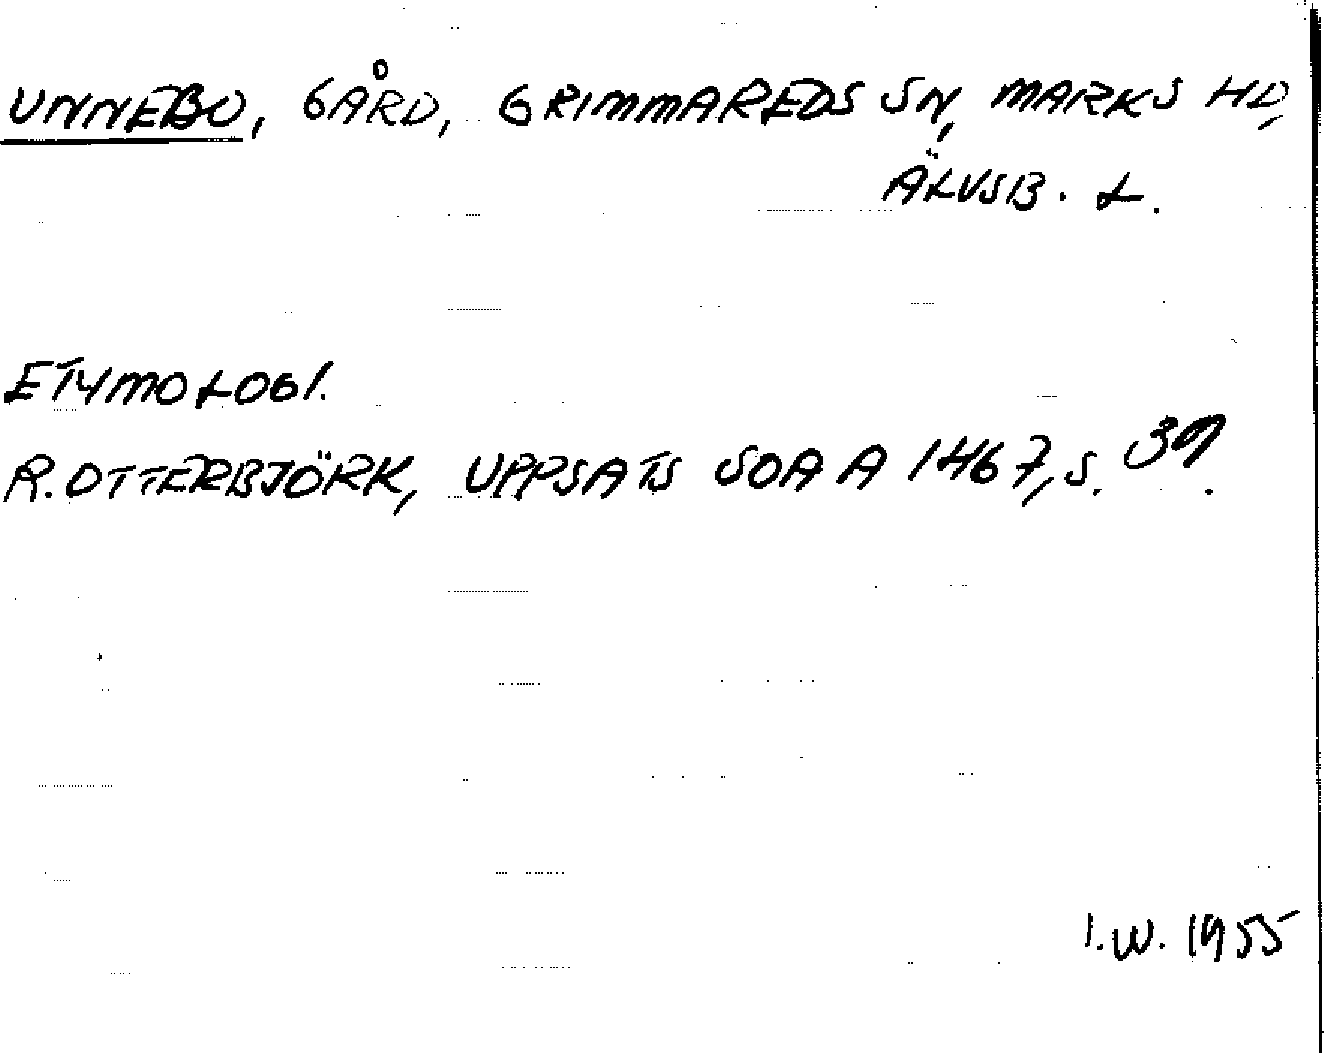 UNNEBO, GÅRD, GRIMMAREDS SN, MARKS HD,
ÄLVSB. L.
ETYMOLOGI.
R. OTTERBJÖRK, UPPSATS SOA A 1467, S. 39.
I.W. 1955